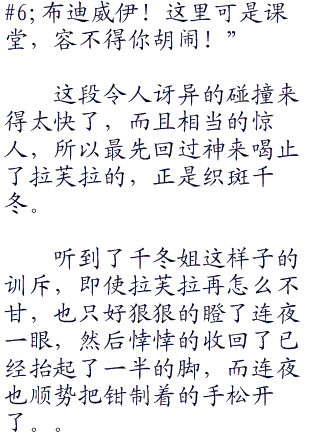 #6; 布迪威伊！这里可是课
堂，容不得你胡闹！”
这段令人讶异的碰撞来
得太快了，而且相当的惊
人，所以最先回过神来喝止
了拉芙拉的，正是织斑千
冬。
听到了千冬姐这样子的
训斥，即使拉芙拉再怎么不
甘，也只好狠狠的瞪了连夜
一眼，然后悻悻的收回了已
经抬起了一半的脚，而连夜
也顺势把钳制着的手松开
了。。